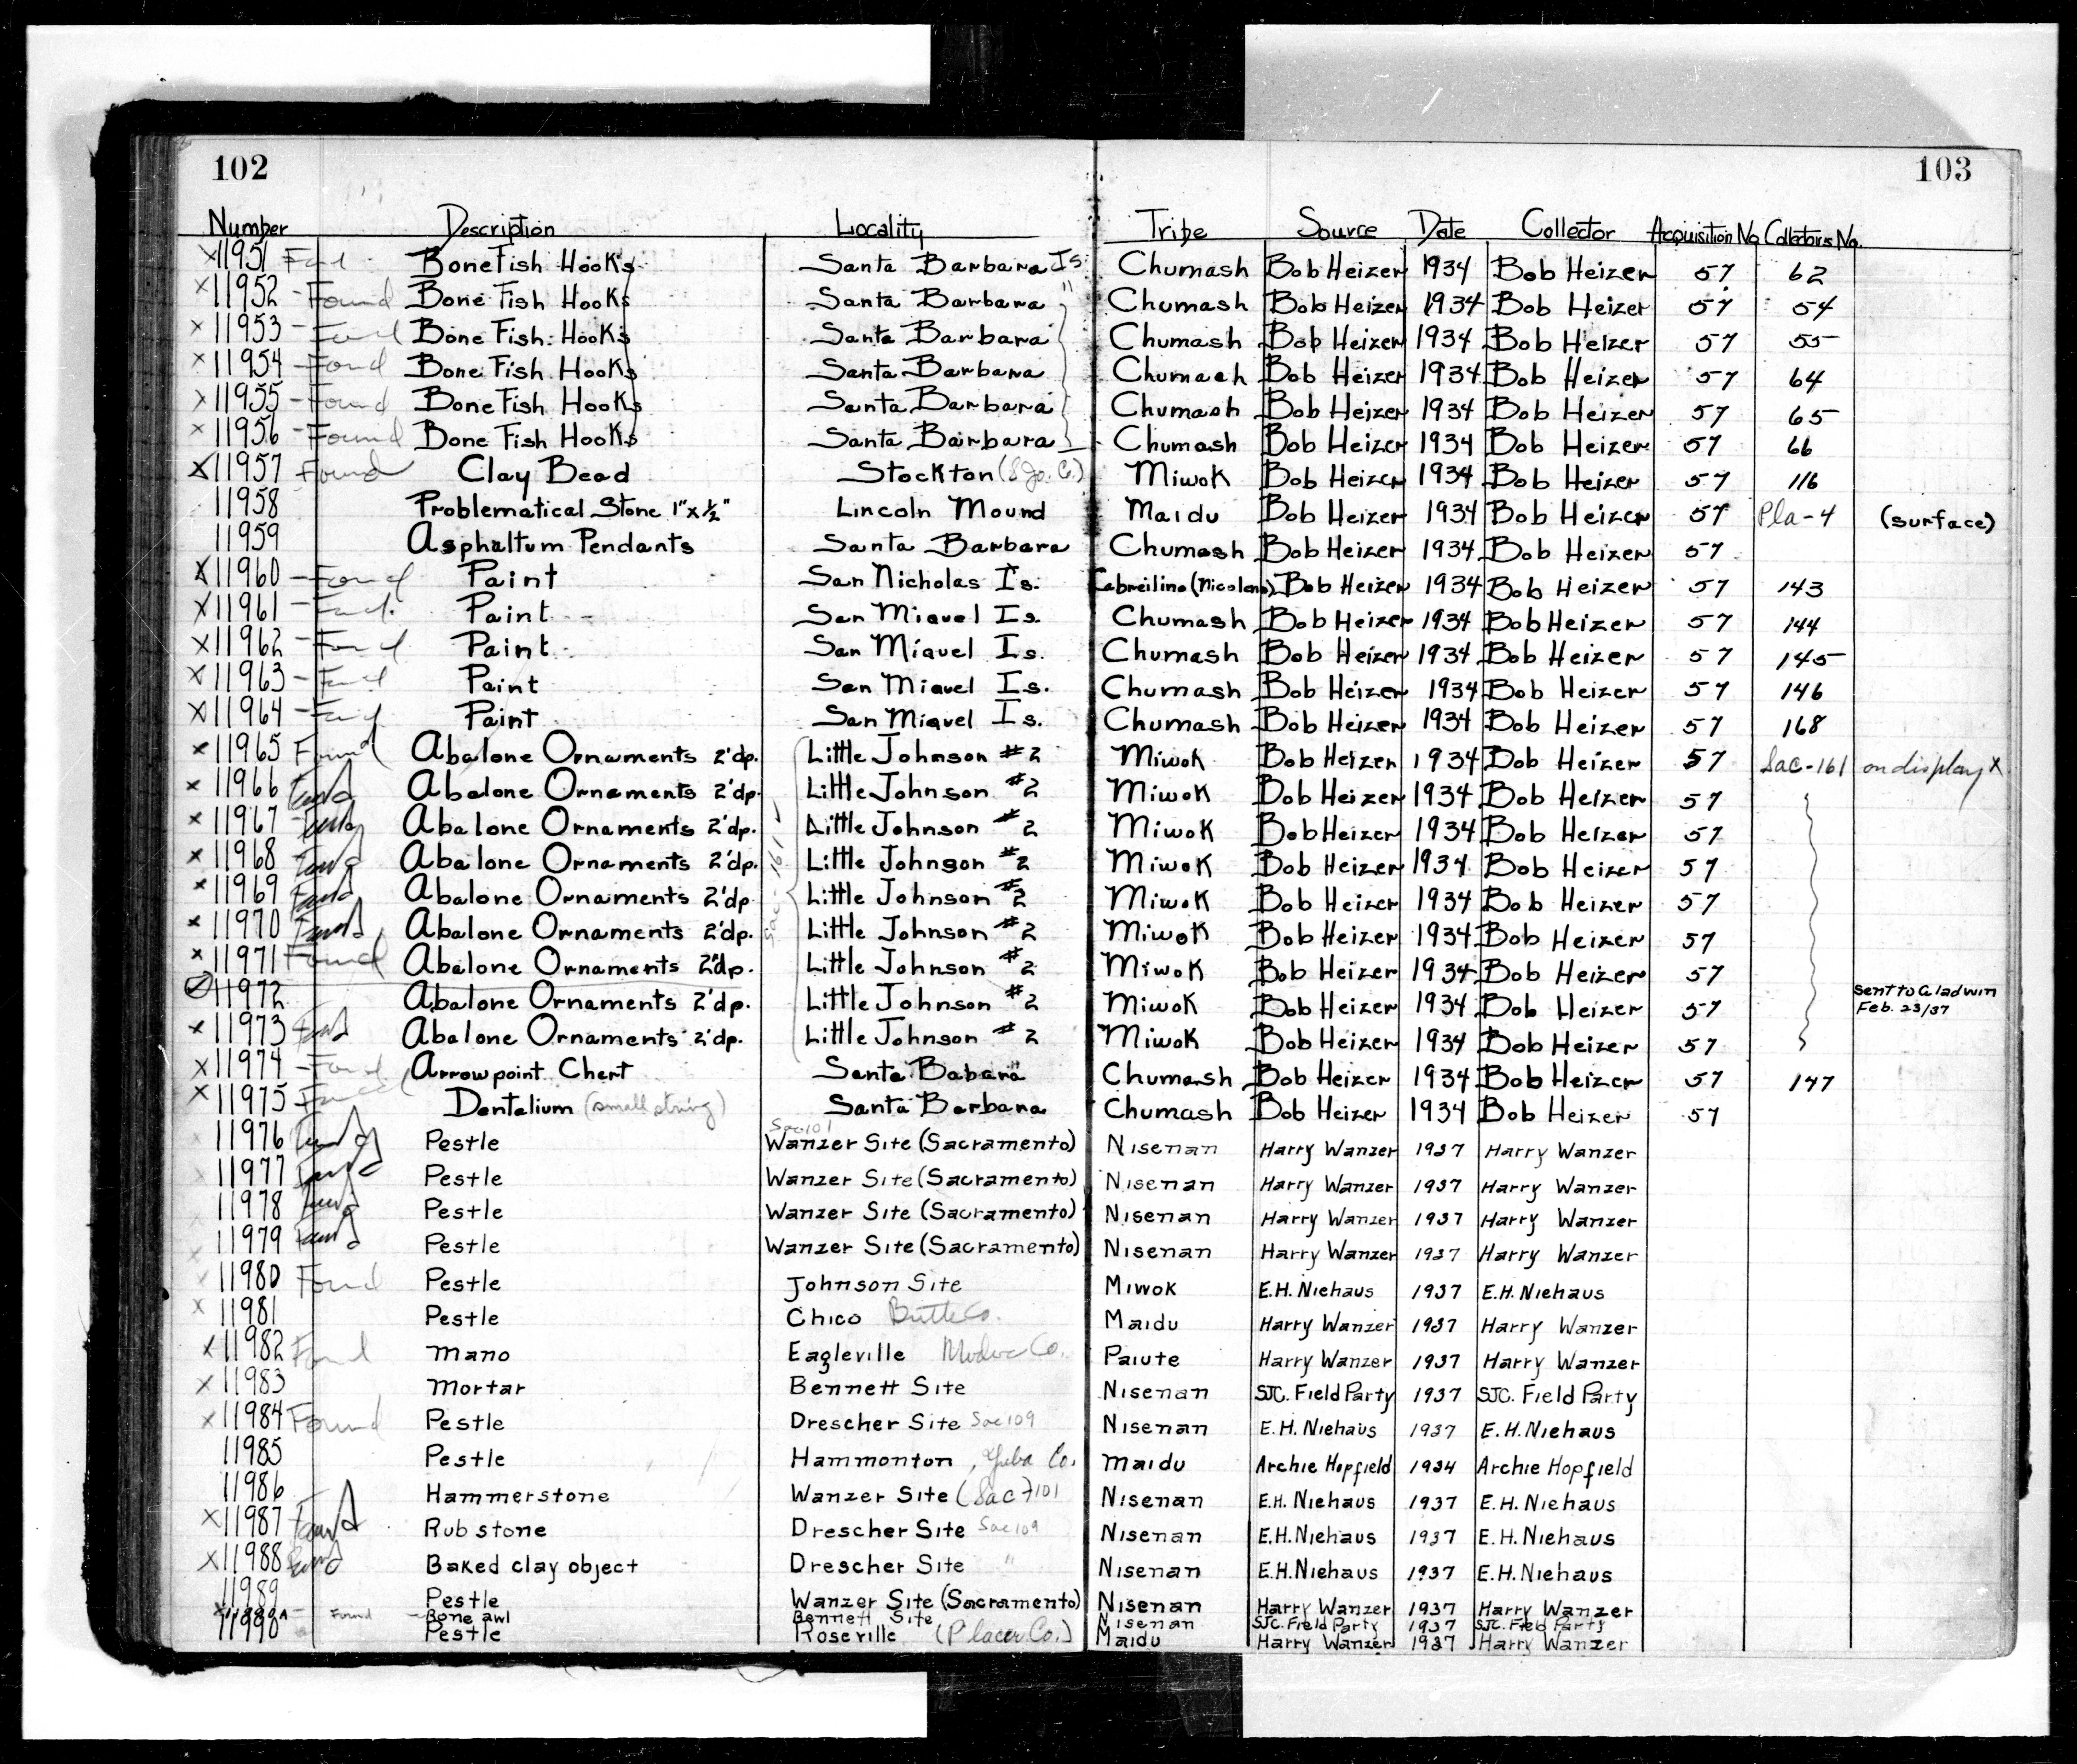 102
103
Number Description Locality Tribe Source Date Collector Acquisition No. Collectors No.
X11951 Found Bone Fish Hooks Santa Barbara Is. Chumash Bob Heizer 1934 Bob Heizer 57 62
X11952 - Found Bone Fish Hooks Santa Barbara " Chumash Bob Heizer 1934 Bob Heizer 57 54
X11953 - Found Bone Fish Hooks Santa Barbara Chumash Bob Heizer 1934 Bob Heizer 57 55
X11954 - Found Bone Fish Hooks Santa Barbara Chumash Bob Heizer 1934 Bob Heizer 57 64
X11955 - Found Bone Fish Hooks Santa Barbara Chumash Bob Heizer 1934 Bob Heizer 57 65
X11956 - Found Bone Fish Hooks Santa Barbara Chumash Bob Heizer 1934 Bob Heizer 57 66
X11957 Found Clay Bead Stockton (S. Jo. Co.) Miwok Bob Heizer 1934 Bob Heizer 57 116
11958 Problematical Stone 1"x½" Lincoln Mound Maidu Bob Heizer 1934 Bob Heizer 57 Pla-4 (surface)
11959 Asphaltum Pendants Santa Barbara Chumash Bob Heizer 1934 Bob Heizer 57
X11960 - Found Paint San Nicholas Is. Gabreilino (Nicoleno) Bob Heizer 1934 Bob Heizer 57 143
X11961 - Found Paint San Miquel Is. Chumash Bob Heizer 1934 Bob Heizer 57 144
X11962 - Found Paint San Miquel Is. Chumash Bob Heizer 1934 Bob Heizer 57 145
X11963 - Found Paint San Miquel Is. Chumash Bob Heizer 1934 Bob Heizer 57 146
X11964 - Found Paint San Miquel Is. Chumash Bob Heizer 1934 Bob Heizer 57 168
X11965 Found Abalone Ornaments 2'dp. Little Johnson #2 Miwok Bob Heizer 1934 Bob Heizer 57 Sac-161 on display X
X11966 Found Abalone Ornaments 2'dp. Little Johnson #2 Miwok Bob Heizer 1934 Bob Heizer 57
X11967 Found Abalone Ornaments 2'dp. Little Johnson #2 Miwok Bob Heizer 1934 Bob Heizer 57
X11968 Found Abalone Ornaments 2'dp. Sac-161 Little Johnson #2 Miwok Bob Heizer 1934 Bob Heizer 57
X11969 Found Abalone Ornaments 2'dp. Little Johnson #2 Miwok Bob Heizer 1934 Bob Heizer 57
X11970 Found Abalone Ornaments 2'dp. Little Johnson #2 Miwok Bob Heizer 1934 Bob Heizer 57
X11971 Found Abalone Ornaments 2'dp. Little Johnson #2 Miwok Bob Heizer 1934 Bob Heizer 57
11972 Abalone Ornaments 2'dp. Little Johnson #2 Miwok Bob Heizer 1934 Bob Heizer 57 Sent to Gladwin Feb. 23/37
X11973 Found Abalone Ornaments 2'dp. Little Johnson #2 Miwok Bob Heizer 1934 Bob Heizer 57
X11974 - Found Arrowpoint Chert Santa Babara Chumash Bob Heizer 1934 Bob Heizer 57 147
X11975 Found Dentalium (small string) Santa Barbara Chumash Bob Heizer 1934 Bob Heizer 57
11976 Found Pestle Sac 101 Wanzer Site (Sacramento) Nisenan Harry Wanzer 1937 Harry Wanzer
11977 Found Pestle Wanzer Site (Sacramento) Nisenan Harry Wanzer 1937 Harry Wanzer
11978 Found Pestle Wanzer Site (Sacramento) Nisenan Harry Wanzer 1937 Harry Wanzer
11979 Found Pestle Wanzer Site (Sacramento) Nisenan Harry Wanzer 1937 Harry Wanzer
11980 Found Pestle Johnson Site Miwok E.H. Niehaus 1937 E.H. Niehaus
X11981 Pestle Chico Butte Co. Maidu Harry Wanzer 1937 Harry Wanzer
X11982 Found Mano Eagleville Modoc Co. Paiute Harry Wanzer 1937 Harry Wanzer
X11983 Mortar Bennett Site Nisenan SJC. Field Party 1937 SJC. Field Party
X11984 Found Pestle Drescher Site Sac 109 Nisenan E.H. Niehaus 1937 E.H. Niehaus
11985 Pestle Hammonton, Yuba Co. Maidu Archie Hopfield 1934 Archie Hopfield
11986 Hammerstone Wanzer Site (Sac 101 Nisenan E.H. Niehaus 1937 E.H. Niehaus
X11987 Found Rubstone Drescher Site Sac 109 Nisenan E.H. Niehaus 1937 E.H. Niehaus
X11988 Found Baked clay object Drescher Site " Nisenan E.H. Niehaus 1937 E.H. Niehaus
11989 Pestle Wanzer Site (Sacramento) Nisenan Harry Wanzer 1937 Harry Wanzer
X11989A Found Bone awl Bennett Site Nisenan SJC. Field Party 1937 SJC. Field Party
11990 Pestle Roseville (Placer Co.) Maidu Harry Wanzer 1937 Harry Wanzer